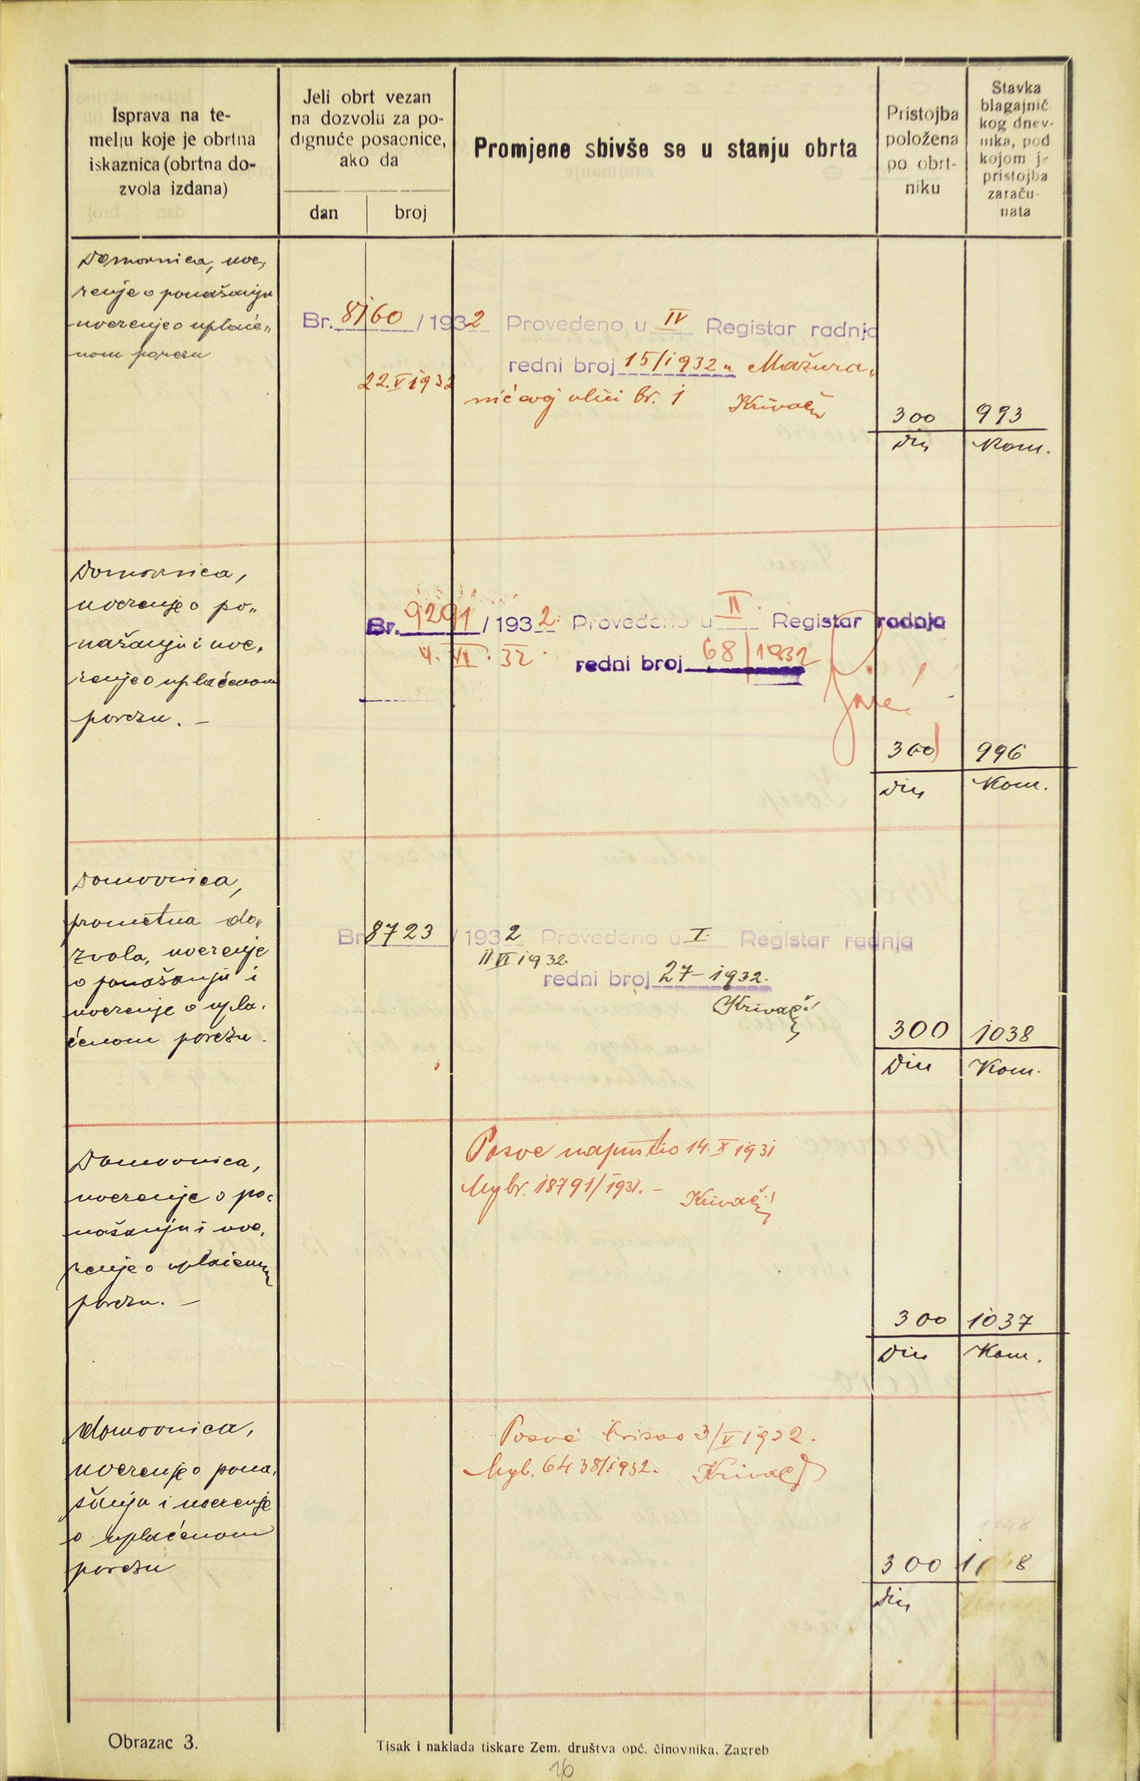 Isprava na te-
melju koje je obrtna
iskaznica (obrtna do-
zvola izdana)
Jeli obrt vezan
na dozvolu za po-
dignuće posaonice,
ako da
dan
broj
Promjene sbivše se u stanju obrta
Pristojba
položena
po obrt-
niku
Stavka
blagajnič
kog dnev-
nika, pod
kojom je
pristojba
zaraču-
nata
Domovnica, uve-
renje o ponašanju
uverenje o uplaće-
nom porezu
Br. 8160 / 1932 Provedeno u IV Registar radnja
redni broj 15/1932 u Mažura-
22.V 1932
nićevoj ulici br. 1 Krivačić
300
993
Din
Kom.
Domovnica,
uverenje o po-
našanju i uve-
renje o uplaćenom
porezu. —
Br. 9291 / 1932. Provedeno u II. Registar radnja
4. VI. 32.
redni broj 68/1932
300
996
Din
Kom.
Domovnica,
prometna do-
zvola, uverenje
o ponašanju i
uverenje o upla-
ćenom porezu.
Br 8723 / 1932 Provedeno u I. Registar radnja
11 VI 1932.
redni broj 27-1932.
Krivačić
300
1038
Din
Kom.
Domovnica,
uverenje o po-
našanju i uve-
renje o uplaćenom
porezu. —
Posve napustio 14. X 1931
Ulybr. 18791/1931. —
Krivačić
300
1037
Din
Kom.
Domovnica,
uverenje o pona-
šanju i uverenje
o uplaćenom
porezu
Posve brisao 3/V 1932.
6438/1932. Krivačić
300
Din
Obrazac 3.
Tisak i naklada tiskare Zem. društva opć. činovnika, Zagreb
16